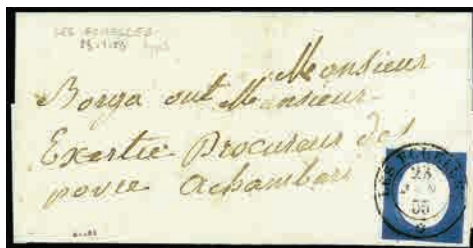 LES ECHELLES
Monsieur
Borga ont Monsieur
Exertie Procureur des
povre Achamberi
LES ECHELLES
23
55